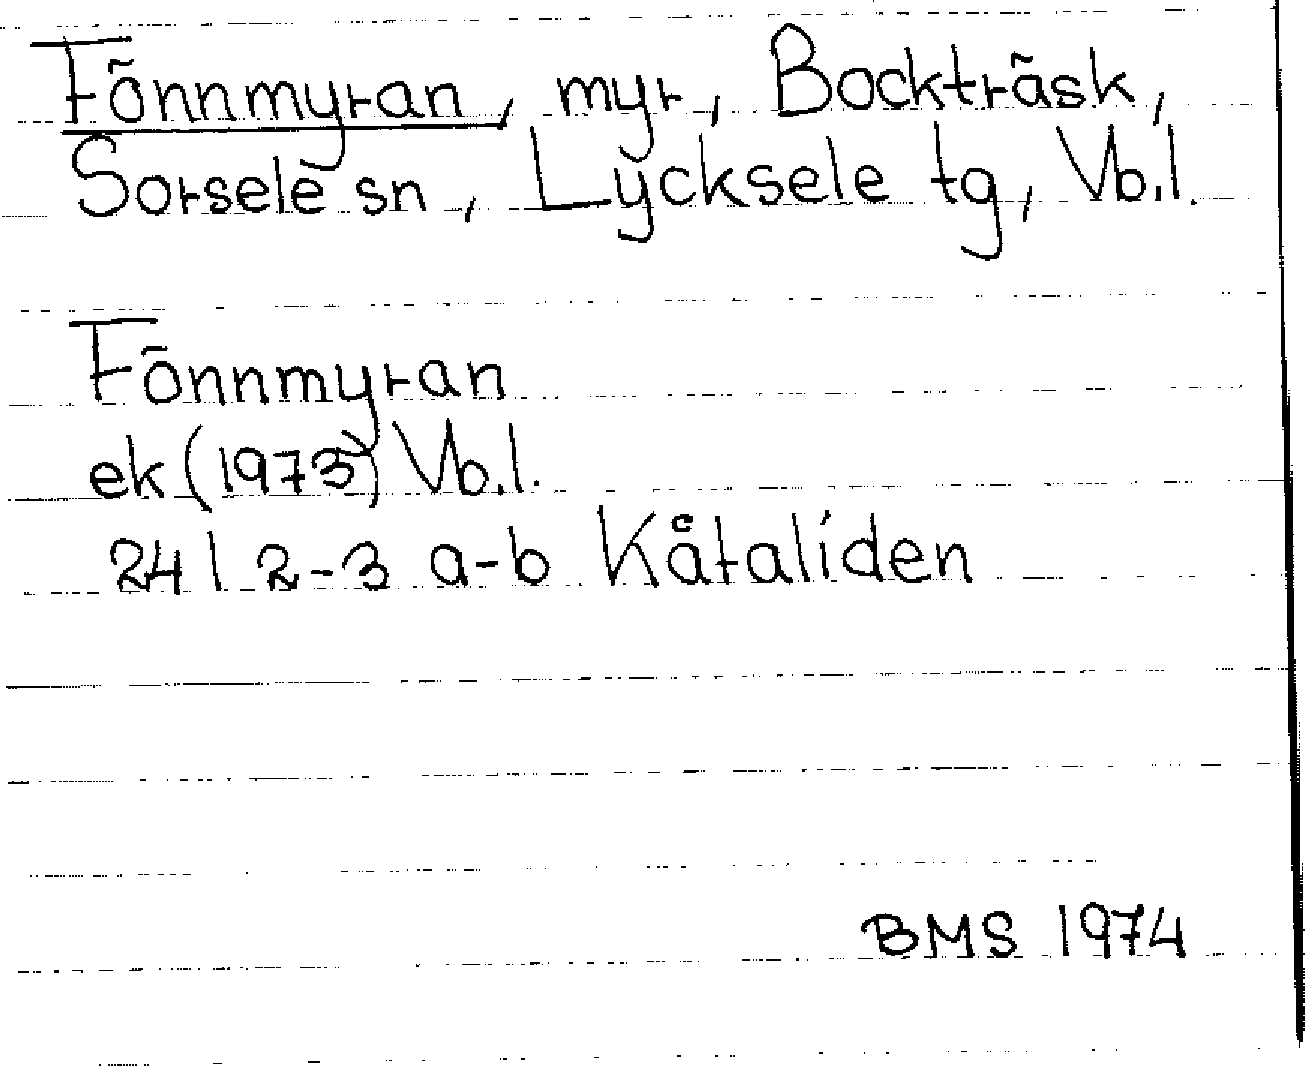 Fönnmyran, myr, Bockträsk,
Sorsele sn, Lycksele tg, Vb.l.
Fönnmyran
ek (1973) Vb.l.
24 I 2-3 a-b Kåtaliden
BMS 1974